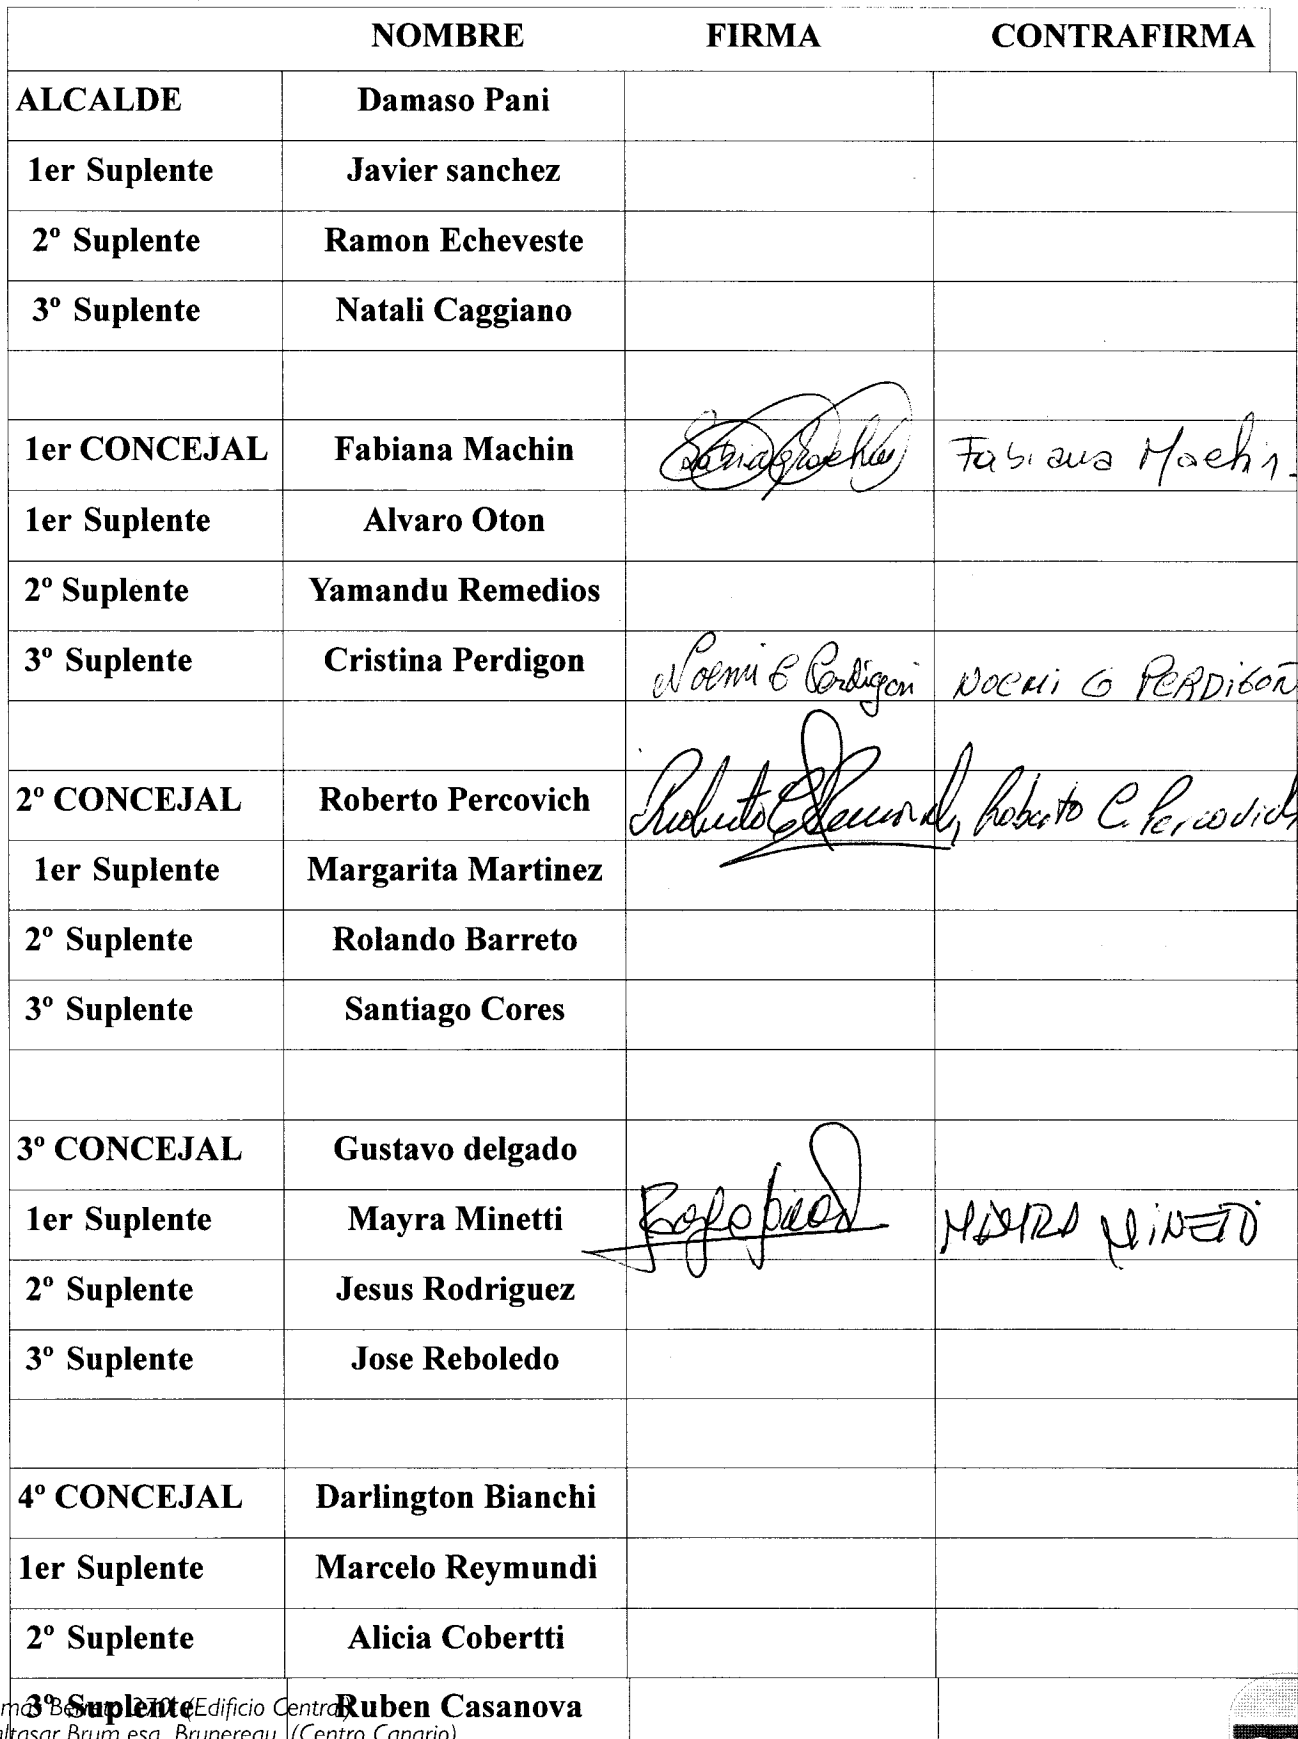 NOMBRE FIRMA CONTRAFIRMA
ALCALDE Damaso Pani
1er Suplente Javier sanchez
2º Suplente Ramon Echeveste
3º Suplente Natali Caggiano
1er CONCEJAL Fabiana Machin Fabiana Machin.
1er Suplente Alvaro Oton
2º Suplente Yamandu Remedios
3º Suplente Cristina Perdigon Noemi C Perdigon NOEMI C PERDIGON
2º CONCEJAL Roberto Percovich Roberto C. Roberto C. Percovich
1er Suplente Margarita Martinez
2º Suplente Rolando Barreto
3º Suplente Santiago Cores
3º CONCEJAL Gustavo delgado
1er Suplente Mayra Minetti MAYRA MINETTI
2º Suplente Jesus Rodriguez
3º Suplente Jose Reboledo
4º CONCEJAL Darlington Bianchi
1er Suplente Marcelo Reymundi
2º Suplente Alicia Cobertti
3º Suplente Ruben Casanova
(Edificio Central)
Brum esq. Brunereau (Centro Canario)